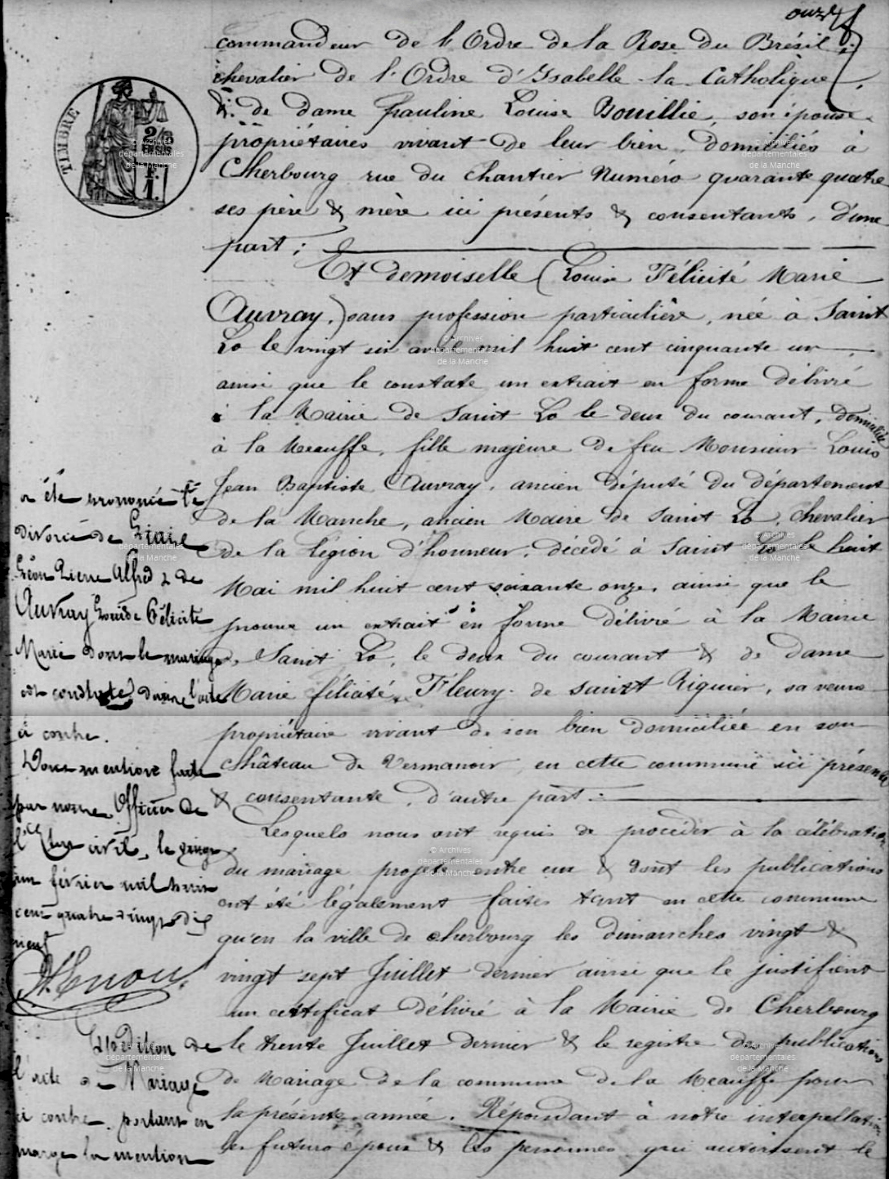 onze
commandeur de l'Ordre de la Rose du Brésil
chevalier de l'Ordre d'Isabelle la Catholique
& de dame Pauline Louise Bouillie, son épouse
propriétaires vivant de leur bien domiciliés à
Cherbourg rue du chantier Numéro quarante quatre
ses père & mère ici présents & consentants, d'une
part;
Et demoiselle (Louise Félicité Marie
Auvray,) sans profession particulière, née à Saint
Lo le vingt six avril mil huit cent cinquante un
ainsi que le constate un extrait en forme délivré
à la Mairie de Saint Lo le deux du courant, domiciliée
à la Meauffe, fille majeure de feu Monsieur Louis
Jean Baptiste Auvray, ancien député du département
de la Manche, ancien Maire de Saint Lo, Chevalier
de la légion d'honneur, décédé à Saint Lo le huit
Mai mil huit cent soixante onze, ainsi que le
prouve un extrait en forme délivré à la Mairie
de Saint Lo, le deux du courant & de dame
Marie félicité Fleury de saint Riquier, sa veuve
propriétaire vivant de son bien domiciliée en son
Château de Vermanoir, en cette commune ici présente
& consentante, d'autre part:
Lesquels nous ont requis de procéder à la célébration
du mariage projeté entre eux & dont les publications
ont été légalement faites tant en cette commune
qu'en la ville de cherbourg les dimanches vingt &
vingt sept Juillet dernier ainsi que le justifient
un certificat délivré à la Mairie de Cherbourg
le trente Juillet dernier & le registre de publications
de Mariage de la commune de la Meauffe pour
la présente année. Répondant à notre interpellation
les futurs époux & les personnes qui autorisent le
TIMBRE
a été prononcé le
divorce de
Léon Pierre Alfred & de
Auvray Louise Félicité
Marie dont le mariage
est constaté dans l'acte
ci contre.
Dont mention faite
par nous Officier de
l'État civil, le vingt
un février mil huit
cent quatre vingt dix
neuf
Expédition de
l'acte de Mariage
ci contre, portant en
marge la mention
© Archives
départementales
de la Manche